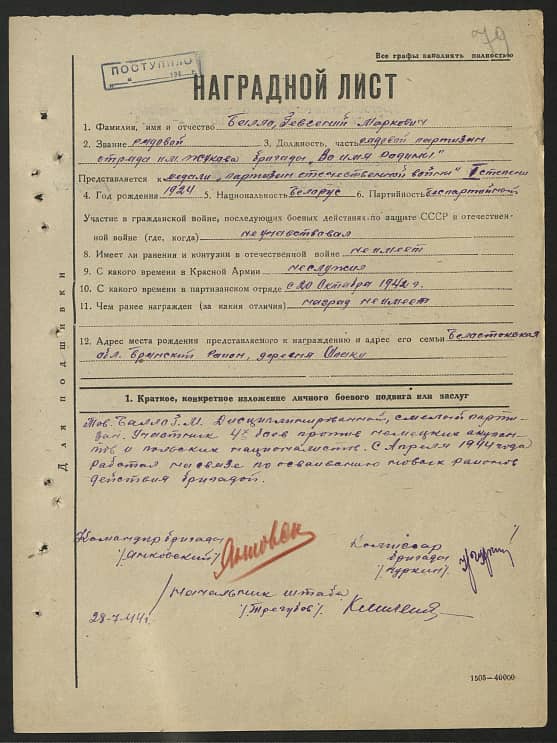 79
Все графы заполнять полностью
ПОСТУПИЛО
194
НАГРАДНОЙ ЛИСТ
1. Фамилия, имя и отчество Балло, Зевсений Маркович
2. Звание рядовой 3. Должность, часть рядовой партизан
отряда им. Жукова бригады „Во имя Родины"
Представляется к медали „Партизан отечественной войны" I степени
4. Год рождения 1924 5. Национальность Беларус 6. Партийность беспартийный
Участие в гражданской войне, последующих боевых действиях по защите СССР и отечествен-
ной войне (где, когда) неучаствовал
8. Имеет ли ранения и контузии в отечественной войне неимеет
9. С какого времени в Красной Армии неслужил
10. С какого времени в партизанском отряде с 20 Октября 1942 г.
11. Чем ранее награжден (за какие отличия) наград неимеет
12. Адрес места рождения представляемого к награждению и адрес его семьи Беластокская
обл. Брянский район, деревня
1. Краткое, конкретное изложение личного боевого подвига или заслуг
Тов. Балло З.М. Дисциплинированной, смелый парти-
зан. Участник 47 боев против немецких окупан-
тов и польских националистов. С Апреля 1944 года
работал насвязе по осваиванию новых районов
действия бригадой.
Командир бригады
/Янковский/
Комиссар
бригады
/Чуркин/
Начальник штаба
/Трегубов/
28-7-44 г.
Для подшивки
1505—40000